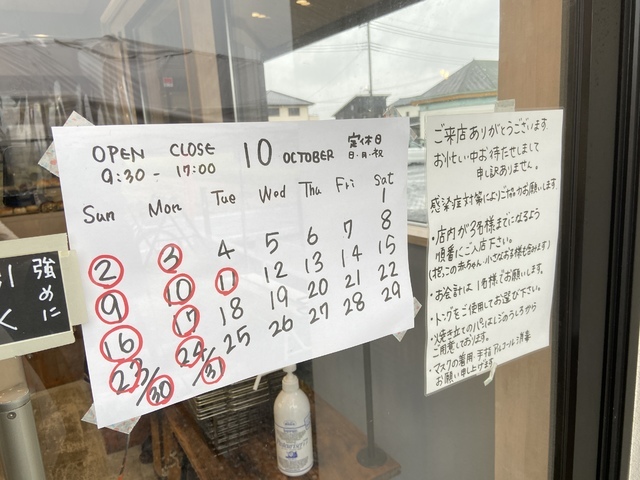 OPEN CLOSE 10 OCTOBER 定休日
9:30 - 17:00 日・月・祝
Sun Mon Tue Wed Thu Fri Sat
1
2 3 4 5 6 7 8
9 10 11 12 13 14 15
16 17 18 19 20 21 22
23/30 24/31 25 26 27 28 29
ご来店ありがとうございます。
お忙しい中お待たせしまして
申し訳ありません。
感染症対策によりご協力お願いします
・店内が3名様までになるよう
順番にご入店下さい。
(抱っこの赤ちゃん・小さなお子様も含みます)
・お会計は1名様でお願いします。
・トングをご使用してお選び下さい。
・焼き立てのパンはレジのうしろから
ご用意しております。
・マスクの着用・手指アルコール消毒
お願い申し上げます。
強めに
く